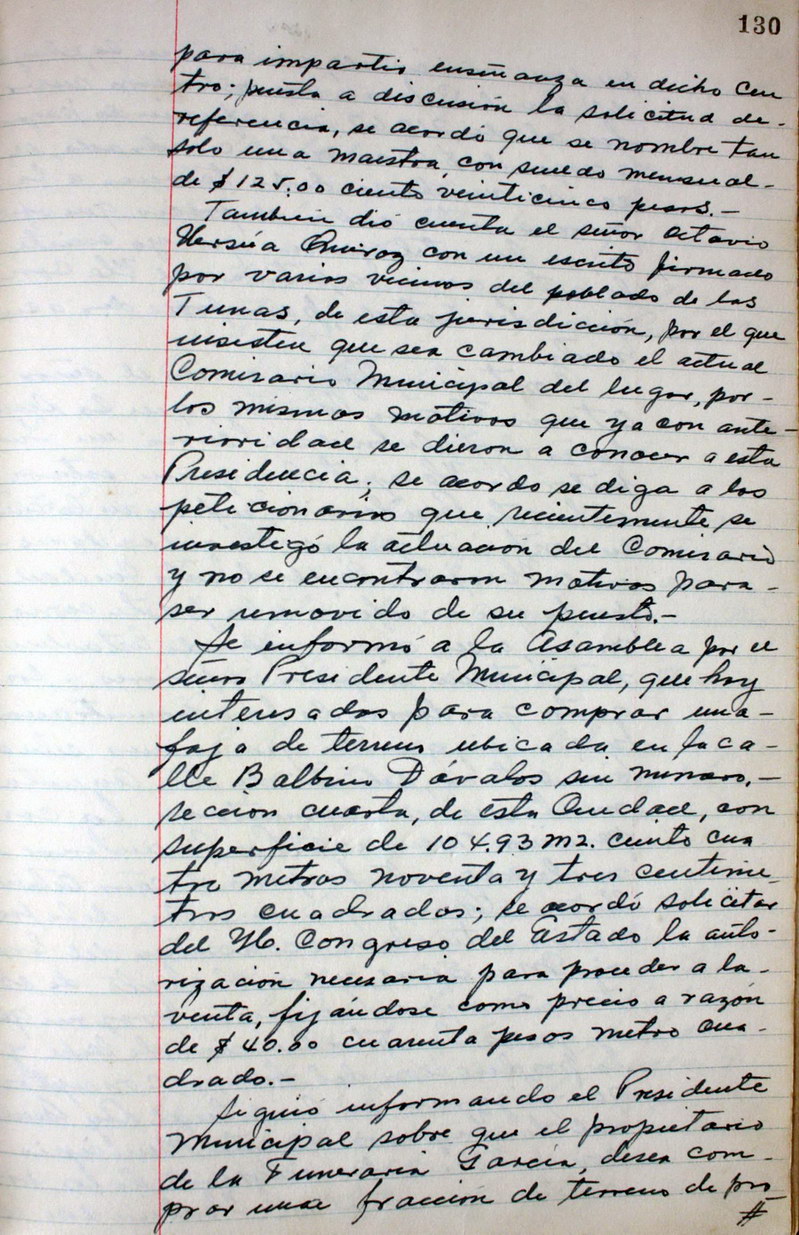 130
para impartir enseñanza en dicho cen
tro; puesta a discusión la solicitud de-
referencia, se acordó que se nombre tan
solo una maestra, con sueldo mensual-
de $125.00 ciento veinticinco pesos.-
También dió cuenta el señor Octavio
Urzúa Quiroz con un escrito firmado
por varios vecinos del poblado de las
Tunas, de esta jurisdicción, por el que
insisten que sea cambiado el actual
Comisario Municipal del lugar, por-
los mismos motivos que ya con ante-
rioridad se dieron a conocer a esta
Presidencia; se acordo se diga a los
peticionarios que recientemente se
investigó la actuación del Comisario
y no se encontraron motivos para-
ser removido de su puesto.-
Se informó a la Asamblea por el
señor Presidente Municipal, que hay
interesados para comprar una-
faja de terreno ubicada en la ca-
lle Balbino Dávalos sin número,-
sección cuarta, de esta Ciudad, con
superficie de 104.93 m2. ciento cua
tro metros noventa y tres centíme
tros cuadrados; se acordó solicitar
del H. Congreso del Estado la auto-
rización necesaria para proceder a la-
venta, fijándose como precio a razón
de $40.00 cuarenta pesos metro cua-
drado.-
Siguió informando el Presidente
Municipal sobre que el propietario
de la Funeraria García, desea com-
prar una fracción de terreno de pro
#